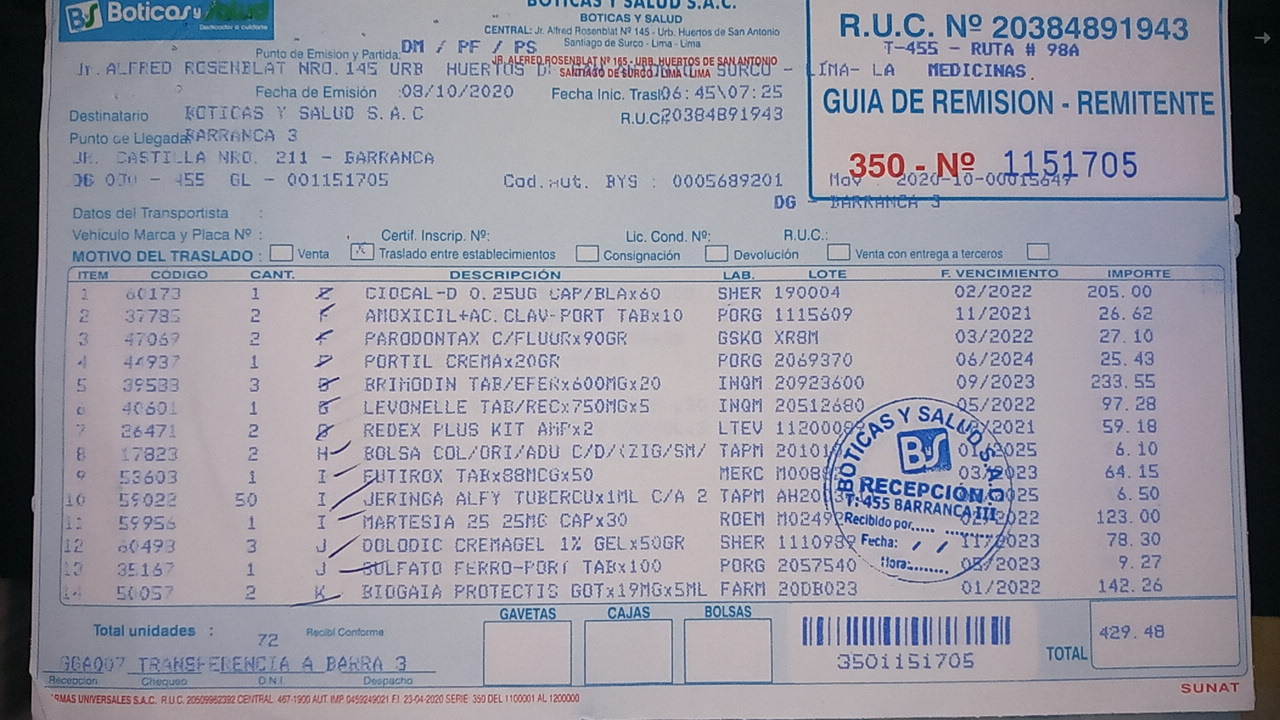 BS Boticas y Salud
BOTICAS Y SALUD S.A.C.
BOTICAS Y SALUD
CENTRAL: Jr. Alfred Rosenblat Nº 145 - Urb. Huertos de San Antonio
Santiago de Surco - Lima - Lima
R.U.C. Nº 20384891943
T-455 - RUTA # 98A
Punto de Emision y Partida: DM / PF / PS
JR. ALFRED ROSENBLAT Nº 165 - URB. HUERTOS DE SAN ANTONIO
SANTIAGO DE SURCO - LIMA - LIMA
Jr. ALFRED ROSENBLAT NRO. 145 URB HUERTOS SURCO - LIMA- LA MEDICINAS
Fecha de Emisión :08/10/2020 Fecha Inic. Trasl 06:45\07:25
GUIA DE REMISION - REMITENTE
Destinatario BOTICAS Y SALUD S.A.C R.U.C. 20384891943
Punto de Llegada BARRANCA 3
JR. CASTILLA NRO. 211 - BARRANCA
350 - Nº 1151705
455 GL - 001151705 Cod.Aut. BYS : 0005689201 Mov 2020-10-00015649
DG - BARRANCA 3
Datos del Transportista :
Vehiculo Marca y Placa Nº : Certif. Inscrip. Nº: Lic. Cond. Nº: R.U.C.:
MOTIVO DEL TRASLADO : Venta Traslado entre establecimientos Consignación Devolución Venta con entrega a terceros
ITEM CÓDIGO CANT. DESCRIPCIÓN LAB. LOTE F. VENCIMIENTO IMPORTE
1 60173 1 CIOCAL-D 0.25UG CAP/BLAx60 SHER 190004 02/2022 205.00
2 37785 2 F AMOXICIL+AC.CLAV-PORT TABx10 PORG 1115609 11/2021 26.62
3 47069 2 F PARODONTAX C/FLUORx90GR GSKO XR8M 03/2022 27.10
4 44937 1 PORTIL CREMAx20GR PORG 2069370 06/2024 25.43
5 39533 3 BRIMODIN TAB/EFERx600MGx20 INQM 20923600 09/2023 233.55
6 40601 1 LEVONELLE TAB/RECx750MGx5 INQM 20512680 05/2022 97.28
7 26471 2 REDEX PLUS KIT AMPx2 LTEV /2021 59.18
8 17823 2 H BOLSA COL/ORI/ADU C/D/(ZIG/SM/ TAPM 01/2025 6.10
9 53603 1 I EUTIROX TABx88MCGx50 MERC 03/2023 64.15
10 59022 50 I JERINGA ALFY TUBERCUx1ML C/A 2 TAPM /2025 6.50
11 59956 1 I MARTESIA 25 25MG CAPx30 ROEM 02/2022 123.00
12 60493 3 J DOLODIC CREMAGEL 1% GELx50GR SHER 1110982 11/2023 78.30
13 35167 1 J SULFATO FERRO-PORT TABx100 PORG 2057540 05/2023 9.27
14 50057 2 K BIOGAIA PROTECTIS GOTx19MGx5ML FARM 20DB023 01/2022 142.26
BOTICAS Y SALUD S.A.C.
BS
RECEPCIÓN
T: 455 BARRANCA III
Recibido por......
Fecha: / /
Hora:........
GAVETAS CAJAS BOLSAS
Total unidades : 72 Recibí Conforme
TOTAL 429.48
GGA007 TRANSFERENCIA A BARRA 3
3501151705
Recepcion Chequeo D.N.I. Despacho
SUNAT
RMAS UNIVERSALES S.A.C. R.U.C. 20509962392 CENTRAL: 467-1900 AUT. IMP. 0459249021 F.I. 23-04-2020 SERIE: 350 DEL 1100001 AL 1200000